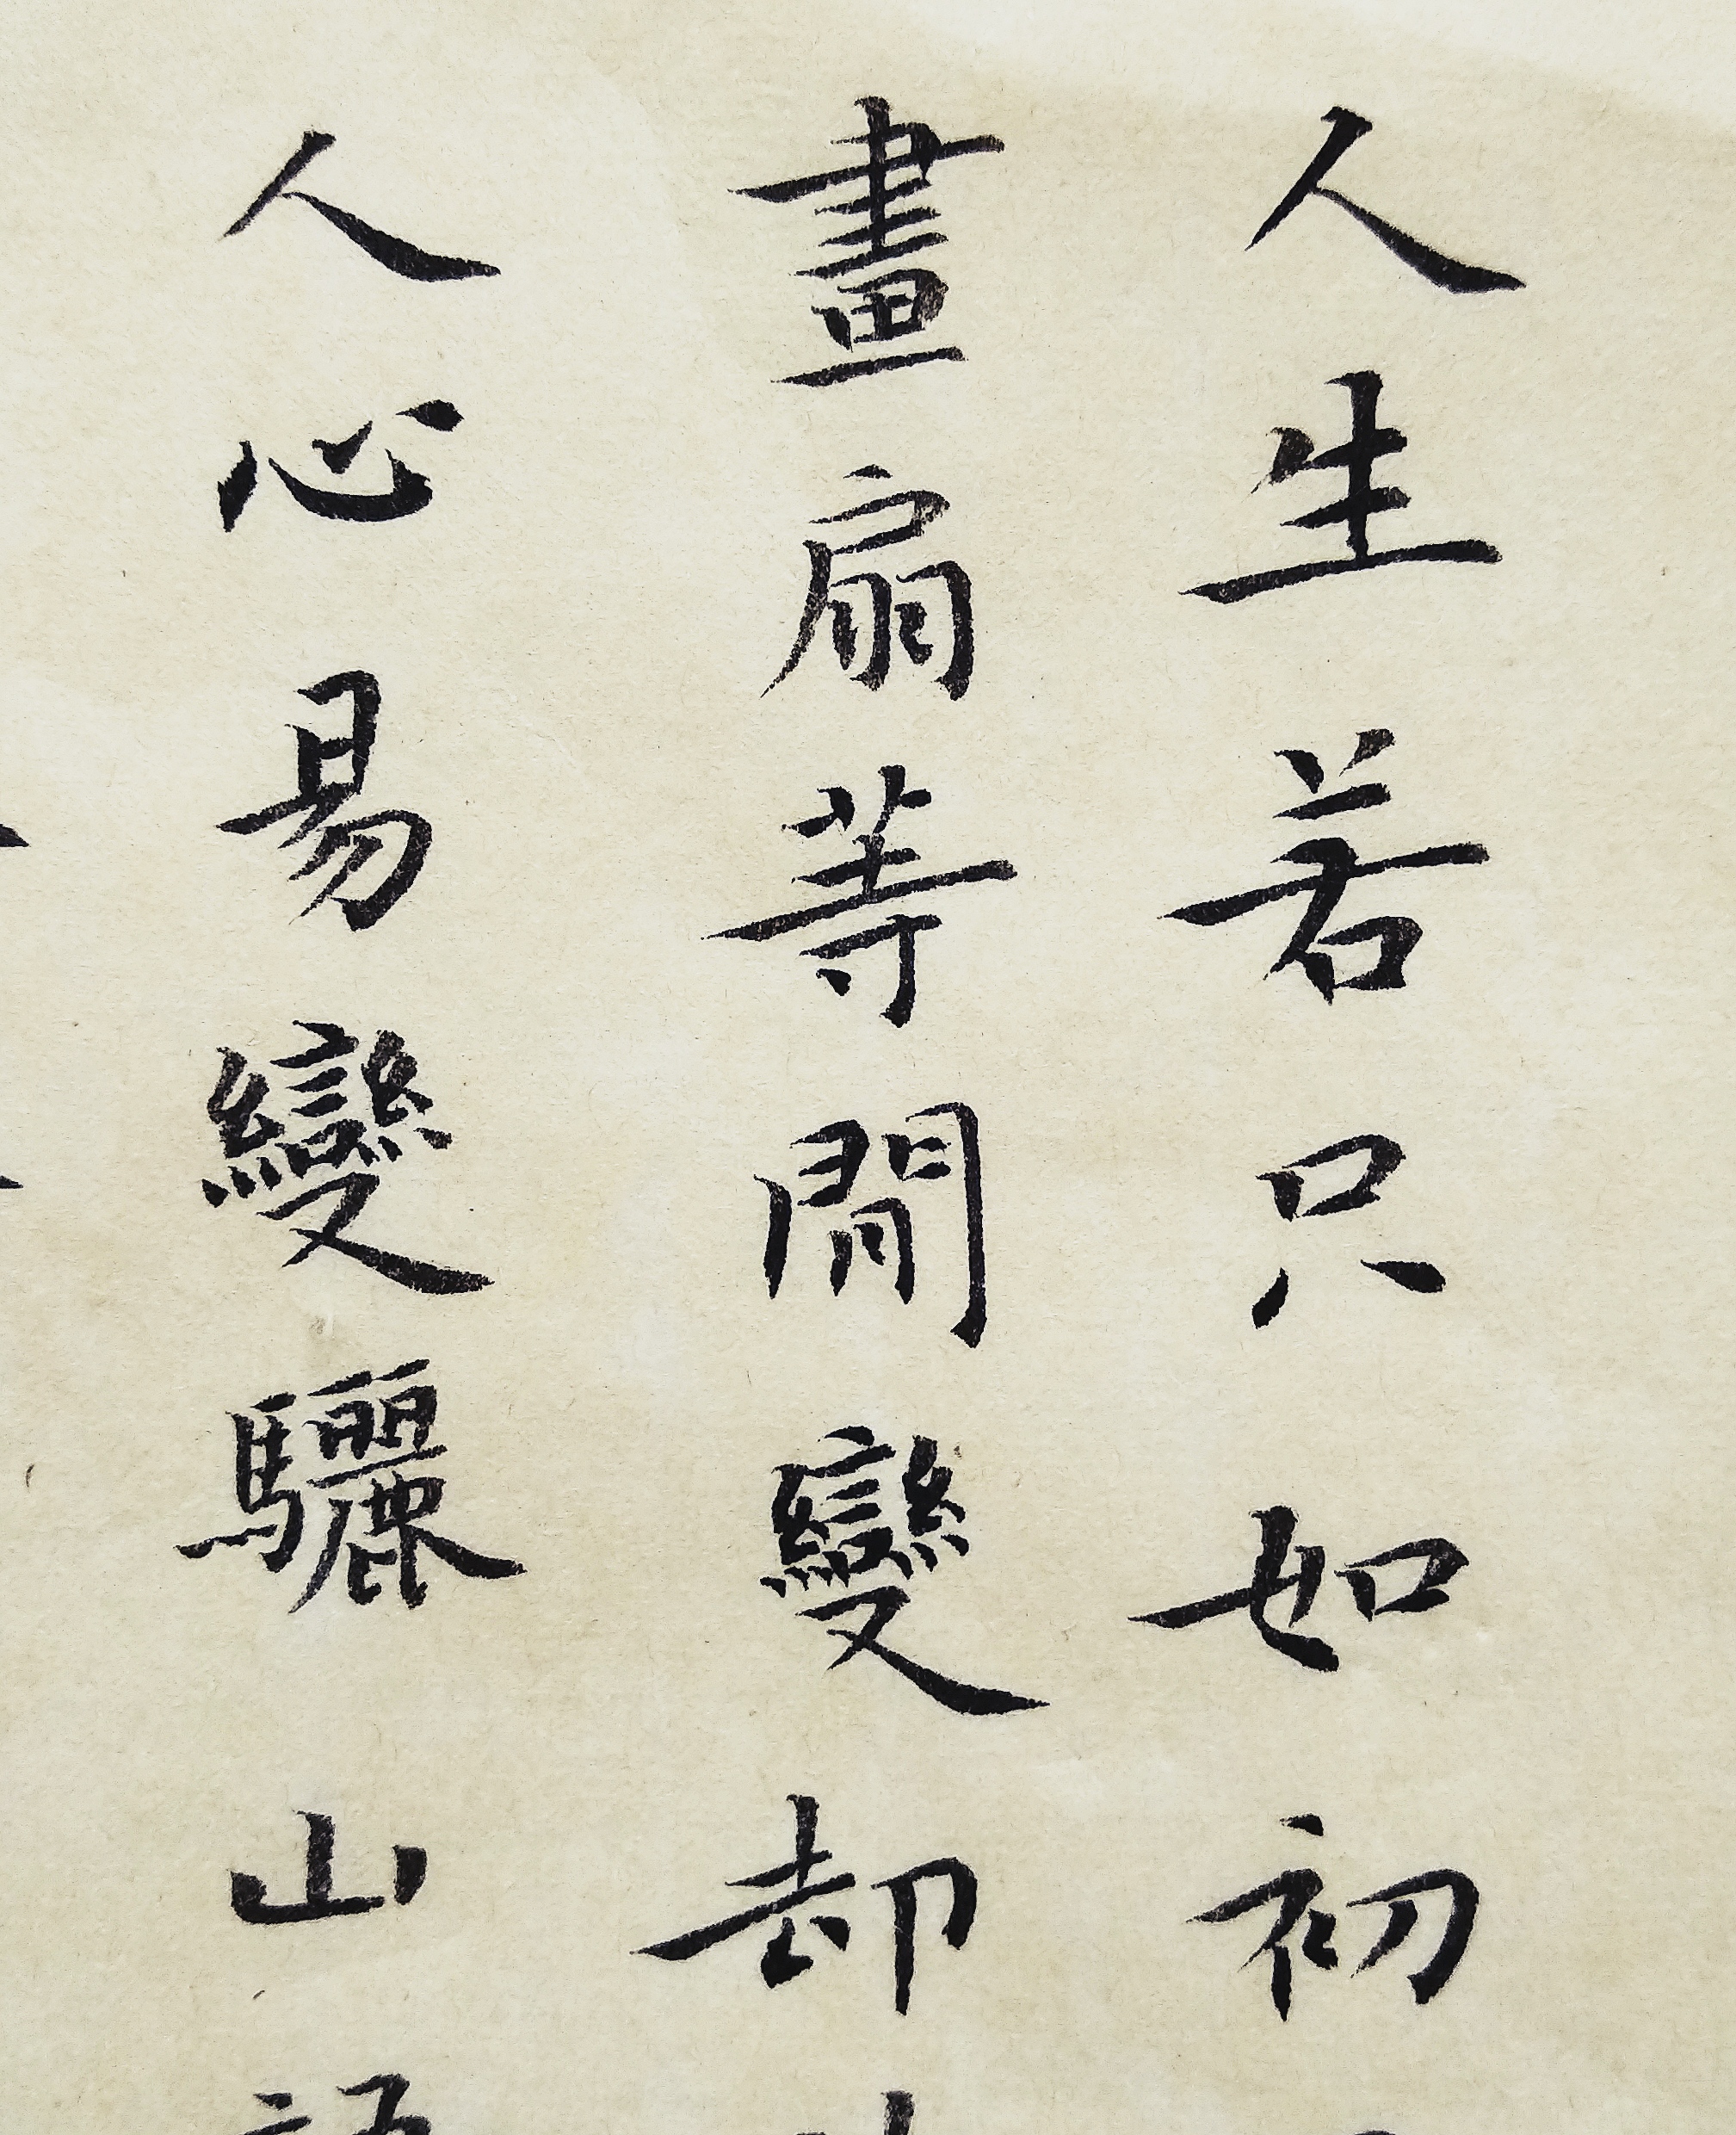 人生若只如初
畫扇等閒變却
人心易變驪山